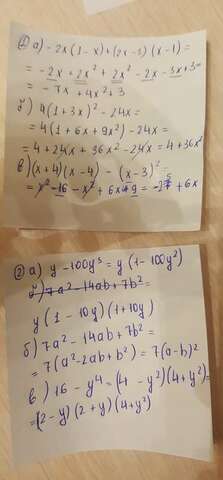 ① а) -2x(1-x)+(2x-3)(x-1)=
= -2x + 2x² + 2x² - 2x - 3x + 3 =
= -7x + 4x² + 3
б) 4(1+3x)² - 24x =
= 4(1+6x+9x²) - 24x =
= 4 + 24x + 36x² - 24x = 4 + 36x²
в) (x+4)(x-4) - (x-3)² =
= x² - 16 - x² + 6x - 9 = -25 + 6x
② а) y - 100y³ = y(1-100y²)
б) 7a² - 14ab + 7b² =
y(1-10y)(1+10y)
б) 7a² - 14ab + 7b² =
= 7(a² - 2ab + b²) = 7(a-b)²
в) 16 - y⁴ = (4 - y²)(4+y²) =
= (2-y)(2+y)(4+y²)